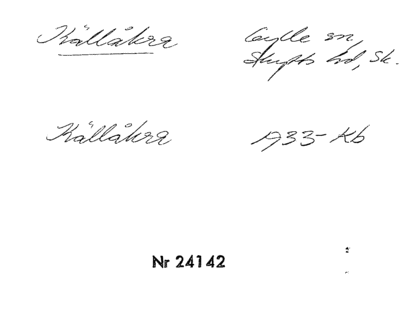 Källåkra Gylle sn,
Skytts hd, Sk.
Källåkra 1933 Kb
Nr 24142